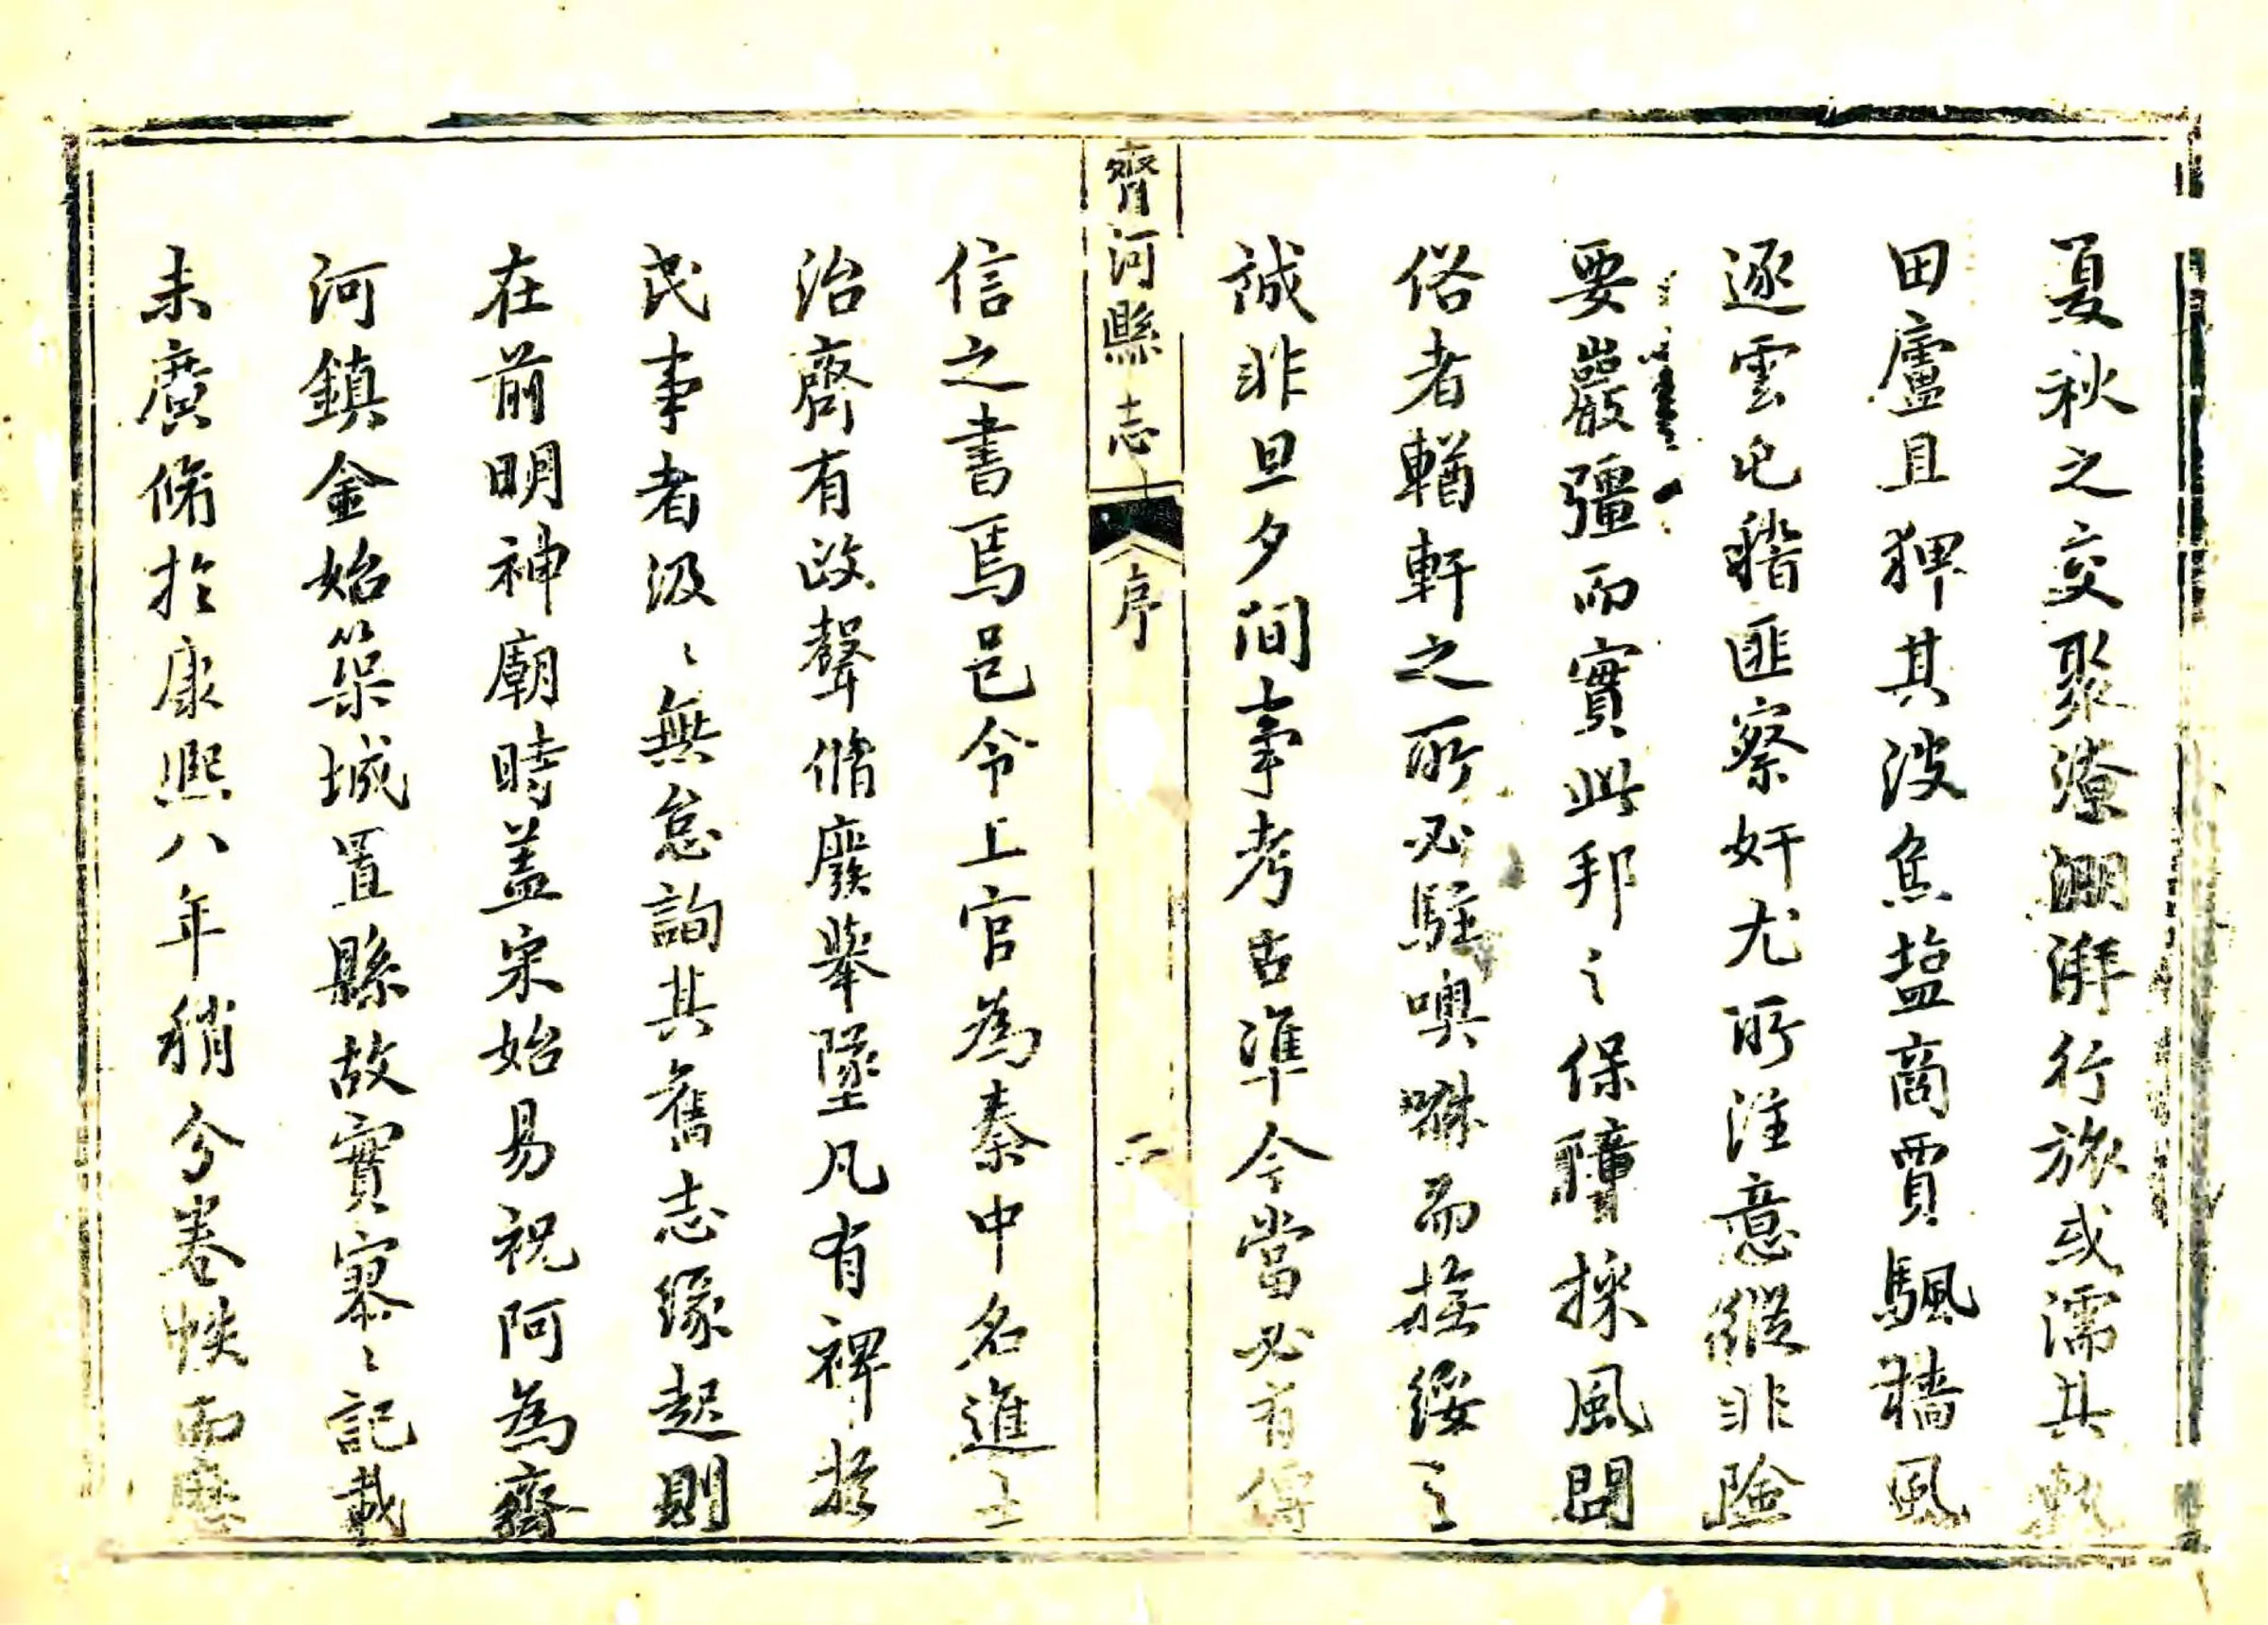 夏秋之交聚潦淜湃行旅或濡其軌
田廬且狎其波魚塩商賈颿檣風
逐雲屯稽匪察奸尤所注意縱非險
要嚴疆而實此邦之保障採風問
俗者輶軒之所必駐噢咻而撫綏之
誠非旦夕間事考古準今當必有傳
齊河縣志
序
二
信之書焉邑令上官為秦中名進士
治齊有政聲脩廢舉墜凡有裨於
民事者汲〻無怠詢其舊志緣起則
在前明神廟時盖宋始易祝阿為齊
河鎮金始築城置縣故實寥〻記載
未廣脩於康熙八年稍分卷帙而歷